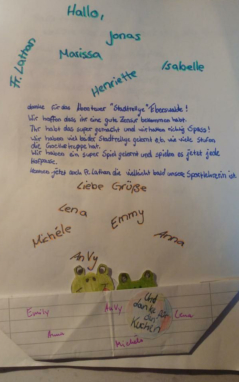 Hallo,
Jonas
Fr. Lattan
Marissa
Isabelle
Henriette
danke für das Abenteuer "Stadtrallye Eberswalde"!
Wir hoffen dass ihr eine gute Zensur bekommen habt.
Ihr habt das super gemacht und wir hatten richtig Spass!
Wir haben viel bei der Stadtrallye gelernt z.B. wie viele Stufen
die Goethetreppe hat.
Wir haben ein super Spiel gelernt und spielen es jetzt jede
Hofpause.
kennen jetzt auch Fr. Lattan die vielleicht bald unsere Sportlehrerin ist.
Liebe Grüße
Lena
Emmy
Michèle
Anna
An Vy
Und
danke für
die
Kuchen
Emily
An Vy
Lena
Anna
Michèle